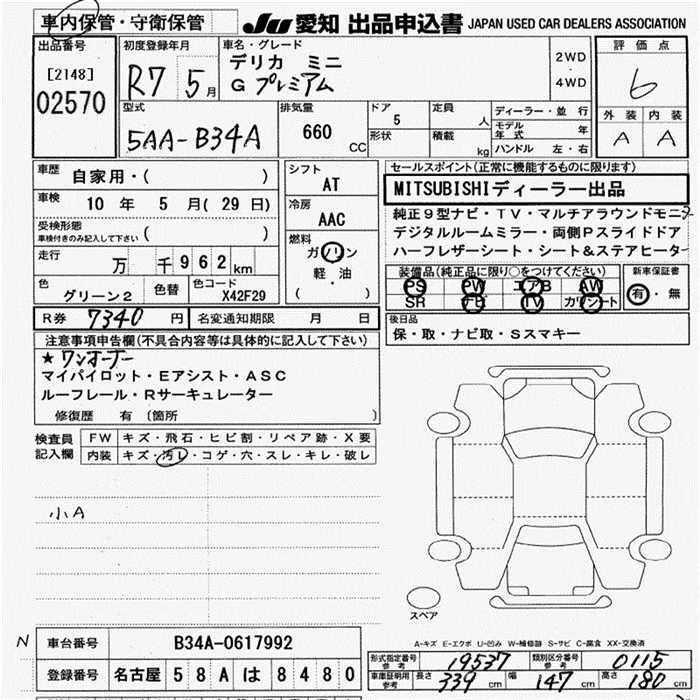 車内保管・守衛保管
JU 愛知 出品申込書 JAPAN USED CAR DEALERS ASSOCIATION
出品番号
[2148]
02570
初度登録年月
R7 5月
車名・グレード
デリカ ミニ
G プレミアム
2WD
・
4WD
評価点
6
外装 内装
A A
型式
5AA-B34A
排気量
660 CC
ドア
5
形状
定員
人
積載
kg
ディーラー・並行
モデル年式 年
ハンドル 左・右
車歴
自家用・( )
車検
10 年 5 月(29 日)
受検形態
車検付きのみ記入して下さい ( )
走行
万 千 962 km
色
グリーン2
色替
色コード
X42F29
シフト
AT
冷房
AAC
燃料
ガソリン
軽・油
( )
セールスポイント(正常に機能するものに限ります)
MITSUBISHIディーラー出品
純正9型ナビ・TV・マルチアラウンドモニタ
デジタルルームミラー・両側Pスライドドア
ハーフレザーシート・シート&ステアヒーター
装備品(純正品に限り○をつけてください)
PS PW エアB AW
SR ナビ TV カワシート
新車保証書
有・無
R券 7340 円
名変通知期限 月 日
後日品
保・取・ナビ取・Sスマキー
注意事項申告欄(不具合内容等は具体的に記入して下さい)
★ワンオーナー
マイパイロット・Eアシスト・ASC
ルーフレール・Rサーキュレーター
修復歴 有 (箇所 )
検査員記入欄
FW キズ・飛石・ヒビ割・リペア跡・X要
内装 キズ・汚レ・コゲ・穴・スレ・キレ・破レ
小A
スペア
A-キズ E-エクボ U-凹み W-補修跡 S-サビ C-腐食 XX-交換済
N
車台番号 B34A-0617992
登録番号 名古屋 58A は 8480
形式指定番号参考 19537 類別区分番号参考 0115
車庫証明用参考 長さ 339 cm 幅 147 cm 高さ 180 cm